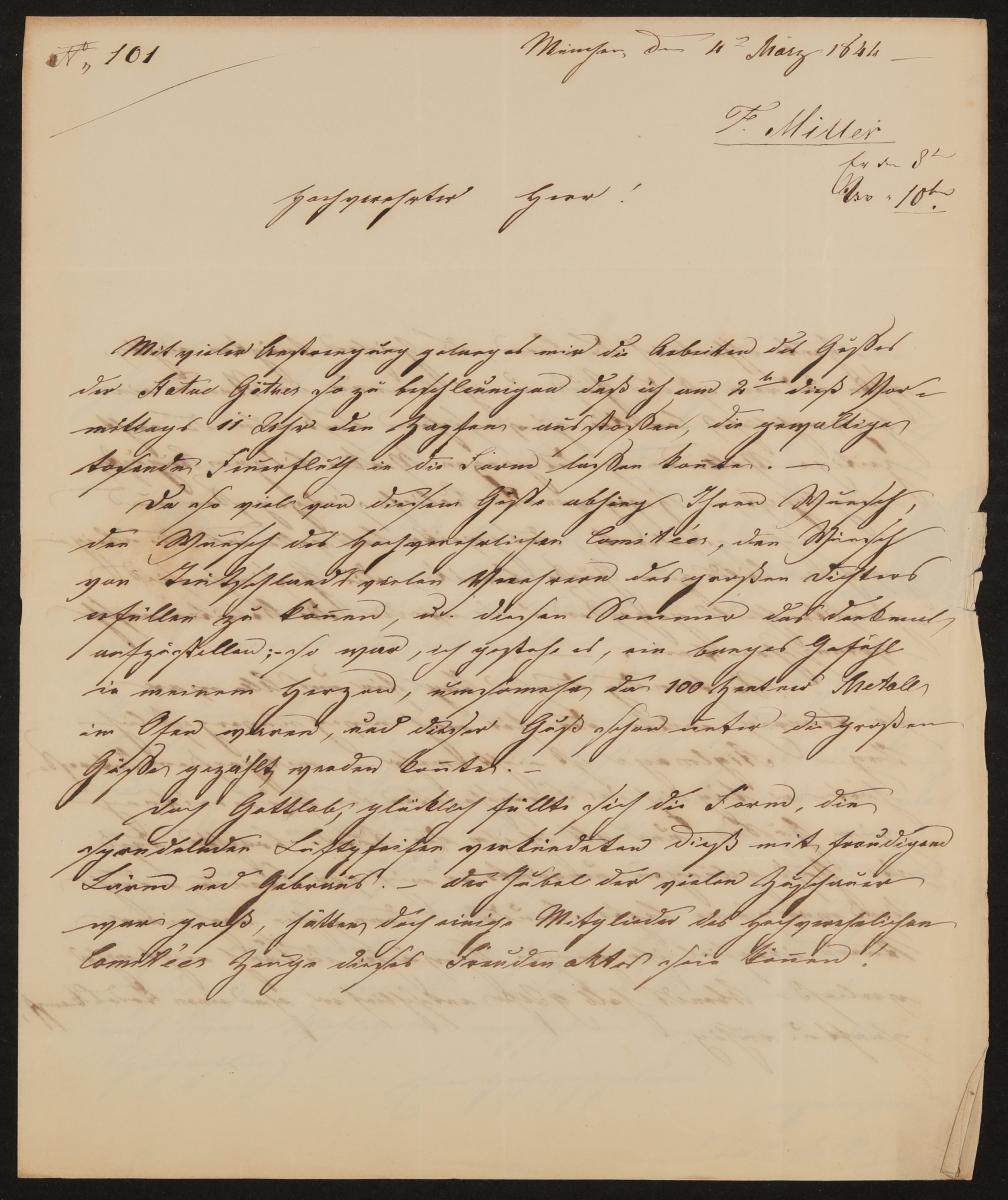 No 101
München den 4t März 1844
F. Miller
Hochverehrter Herr!
Mit vieler Anstrengung gelang es mir die Arbeiten des Gußes
der Statue Göthes so zu beschleunigen daß ich am 2t dieß Vor-
mittags 11 Uhr den Zapfen ausstoßen, die gewaltige
tosende Feuerfluth in die Form lassen konnte. —
Da so viel von diesem Guße abhing Ihren Wunsch,
den Wunsch des Hochverehrlichen Comitées, den Wunsch
von Deutschlands vielen Verehrern des großen Dichters
erfüllen zu können, u. diesen Sommer das Denkmal
aufzustellen; – so war, ich gestehe es, ein banges Gefühl
in meinem Herzen, umsomehr da 100 Zentner Metall
im Ofen waren, und dieser Guß schon unter die großen
Güße gezählt werden konnte. —
Doch Gottlob, glücklich füllte sich die Form, die
sprudelnden Luftpfeifen verkündeten dieß mit freudigem
Lärm und Gebraus. — Der Jubel der vielen Zuschauer
war groß, hätten doch einige Mitglieder des Hochverehrlichen
Comitées Zeuge dieses Freuden aktes sein können!